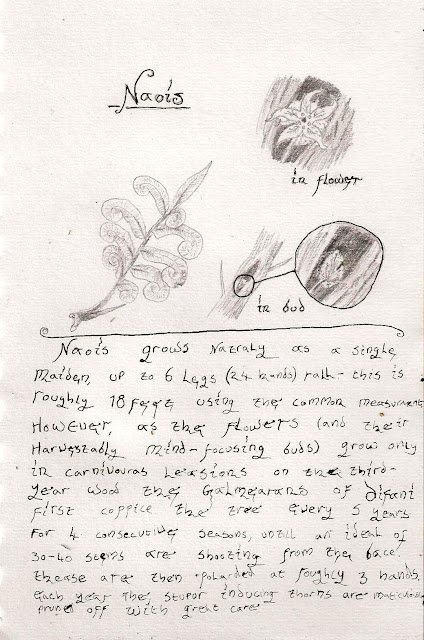 Naois
in flower
in bud
Naois grows Natraly as a single
maiden, up to 6 Legs (24 hands) tall - this is
roughly 18 feet using the common measurement
However, as the flowers (and their
Harvestably mind-focusing buds) grow only
in carnivouras Leasions on the third-
year wood the Galmearans of Difani
first coppice the tree every 5 years
For 4 consecutive seasons, until an ideal of
30-40 stems are shooting from the base.
thease are then polarded at roughly 3 hands.
Each year the stupor inducing thorns are maticulously
pruned off with great care